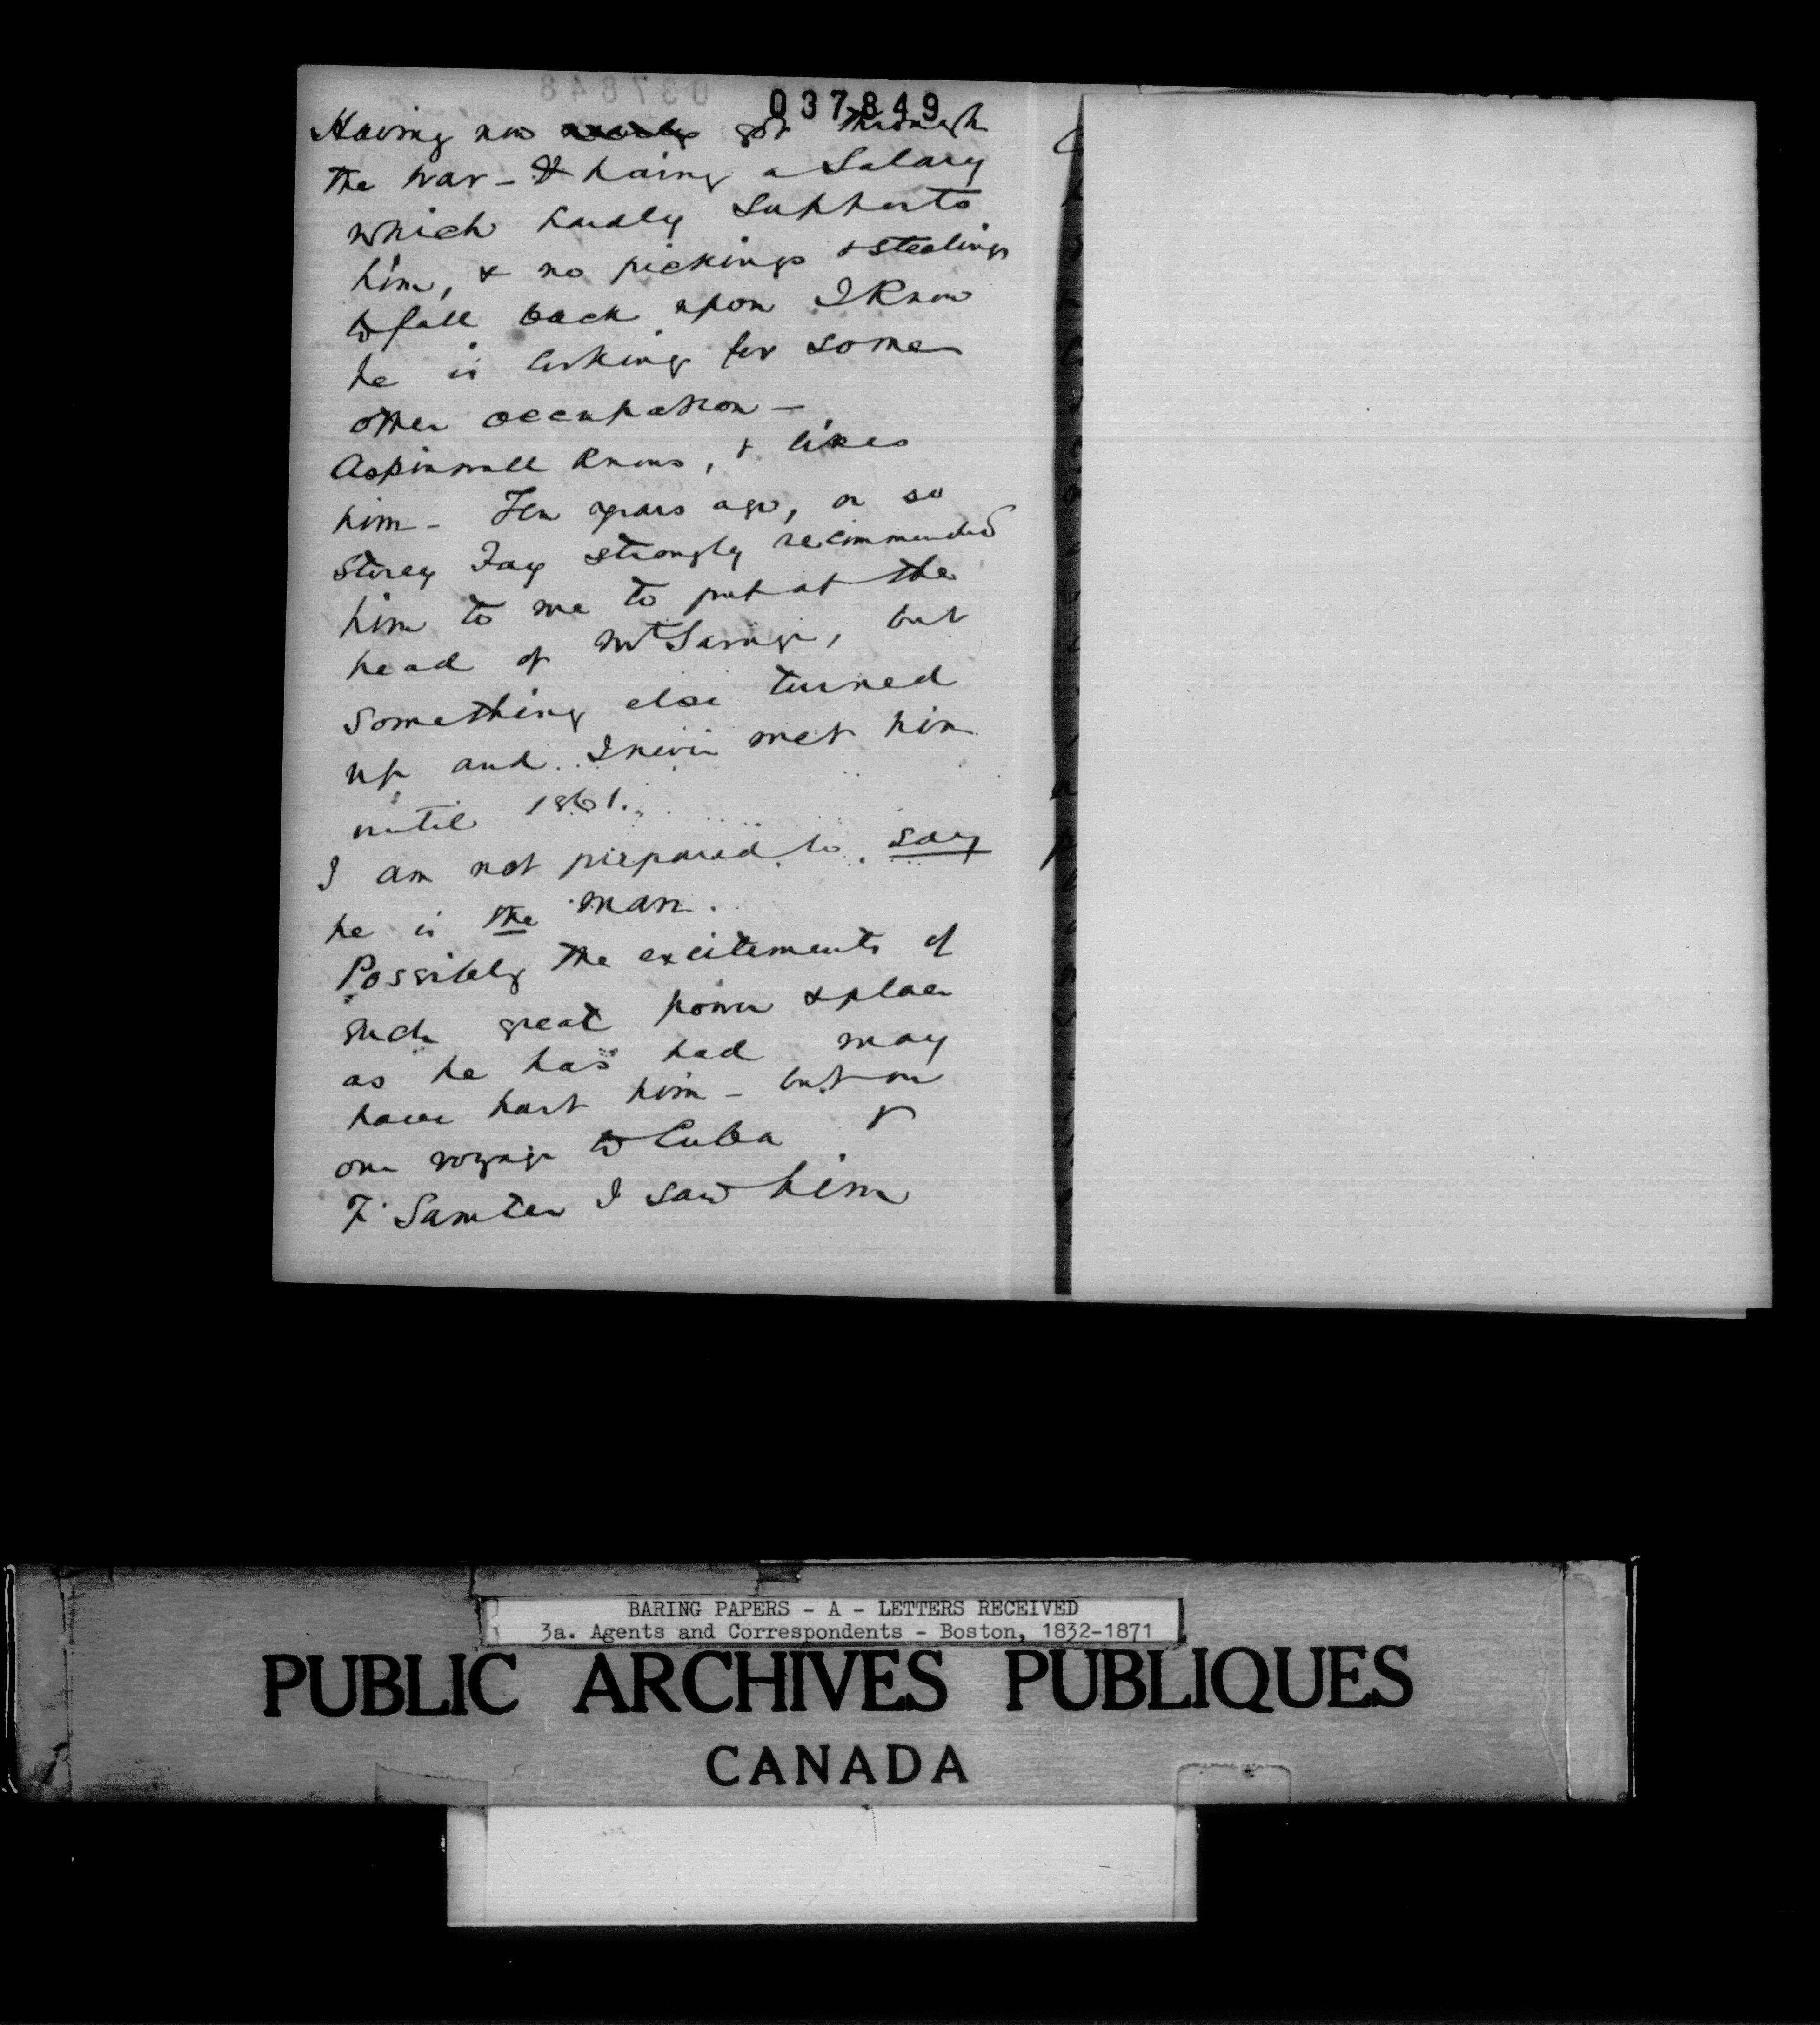 037848
037849
Having now nearly got through
the war - & having a Salary
which hardly supports
him, & no pickings & stealings
to fall back upon I know
he is looking for some
other occupation -
Aspinwall knows, & likes
him - Ten years ago, or so
Storey Fay strongly recommended
him to me to put at the
head of Mt Savage, but
something else turned
up and I never met him
until 1861.
I am not prepared to say
he is the man.
Possibly the excitements of
such great power & place
as he has had may
have hurt him - but on
our voyage to Cuba &
F. Sumter I saw him
BARING PAPERS - A - LETTERS RECEIVED
3a. Agents and Correspondents - Boston, 1832-1871
PUBLIC ARCHIVES PUBLIQUES
CANADA